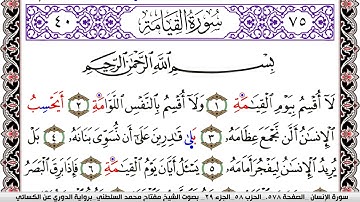 ٧٥ سُورَةُ القِيَامَةِ ٤٠
بِسْمِ اللَّهِ الرَّحْمَٰنِ الرَّحِيمِ
لَآ أُقْسِمُ بِيَوْمِ الْقِيَٰمَةِ ١ وَلَآ أُقْسِمُ بِالنَّفْسِ اللَّوَّامَةِ ٢ أَيَحْسِبُ
الْإِنسَٰنُ أَلَّن نَّجْمَعَ عِظَامَهُۥ ٣ بَلَىٰ قَٰدِرِينَ عَلَىٰٓ أَن نُّسَوِّىَ بَنَانَهُۥ ٤ بَلْ
يُرِيدُ الْإِنسَٰنُ لِيَفْجُرَ أَمَامَهُۥ ٥ يَسْـَٔلُ أَيَّانَ يَوْمُ الْقِيَٰمَةِ ٦ فَإِذَا بَرِقَ الْبَصَرُ
سورة الإنسان . الصفحة ٥٧٨ . الحزب ٥٨ . الجزء ٢٩ . بصوت الشيخ مفتاح محمد السلطني . برواية الدوري عن الكسائي